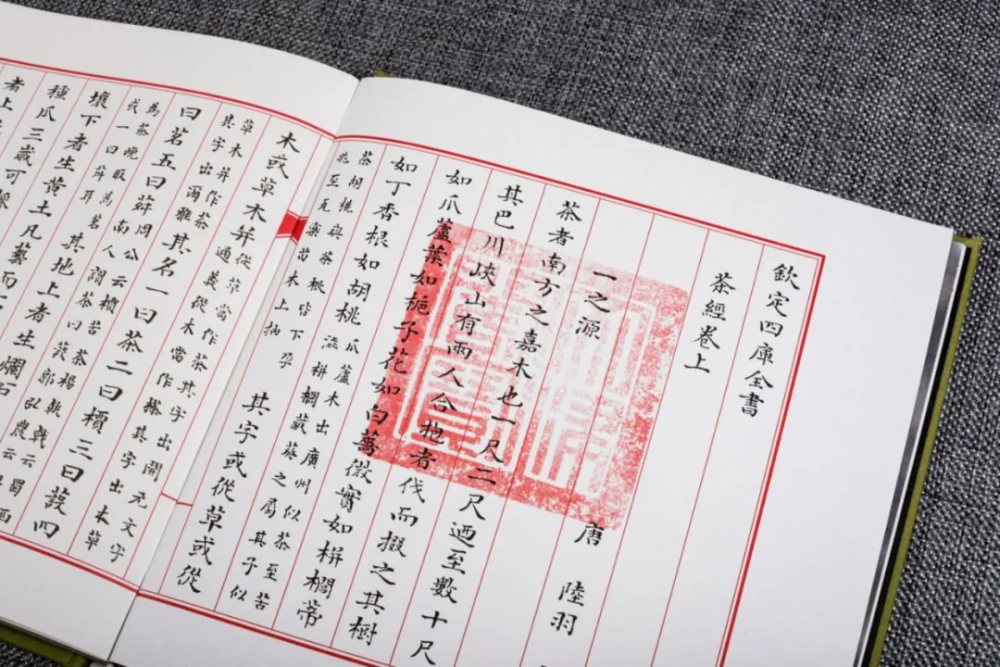 欽定四庫全書
茶經卷上
唐 陸羽
一之源
茶者南方之嘉木也一尺二尺迺至數十尺
其巴川峽山有兩人合抱者伐而掇之其樹
如瓜蘆葉如梔子花如白薔薇實如栟櫚蒂
如丁香根如胡桃
瓜蘆木出廣州似茶至苦
澁栟櫚蒲葵之屬其子似
茶胡桃與茶根皆下孕
兆至瓦礫苗木上抽
其字或從草或從
木或草木并
從草當作茶其字出開元文字
通義從木當作搽其字出本草
草木并作荼
其字出爾雅
其名一曰茶二曰檟三曰蔎四
曰茗五曰荈
周公云檟苦荼揚執戟云蜀西
南人謂茶曰蔎郭弘農云
為茶晚取為茗
或一曰荈耳
其地上者生爛石
壤下者生黄土凡藝而
種瓜三歲可採
者上